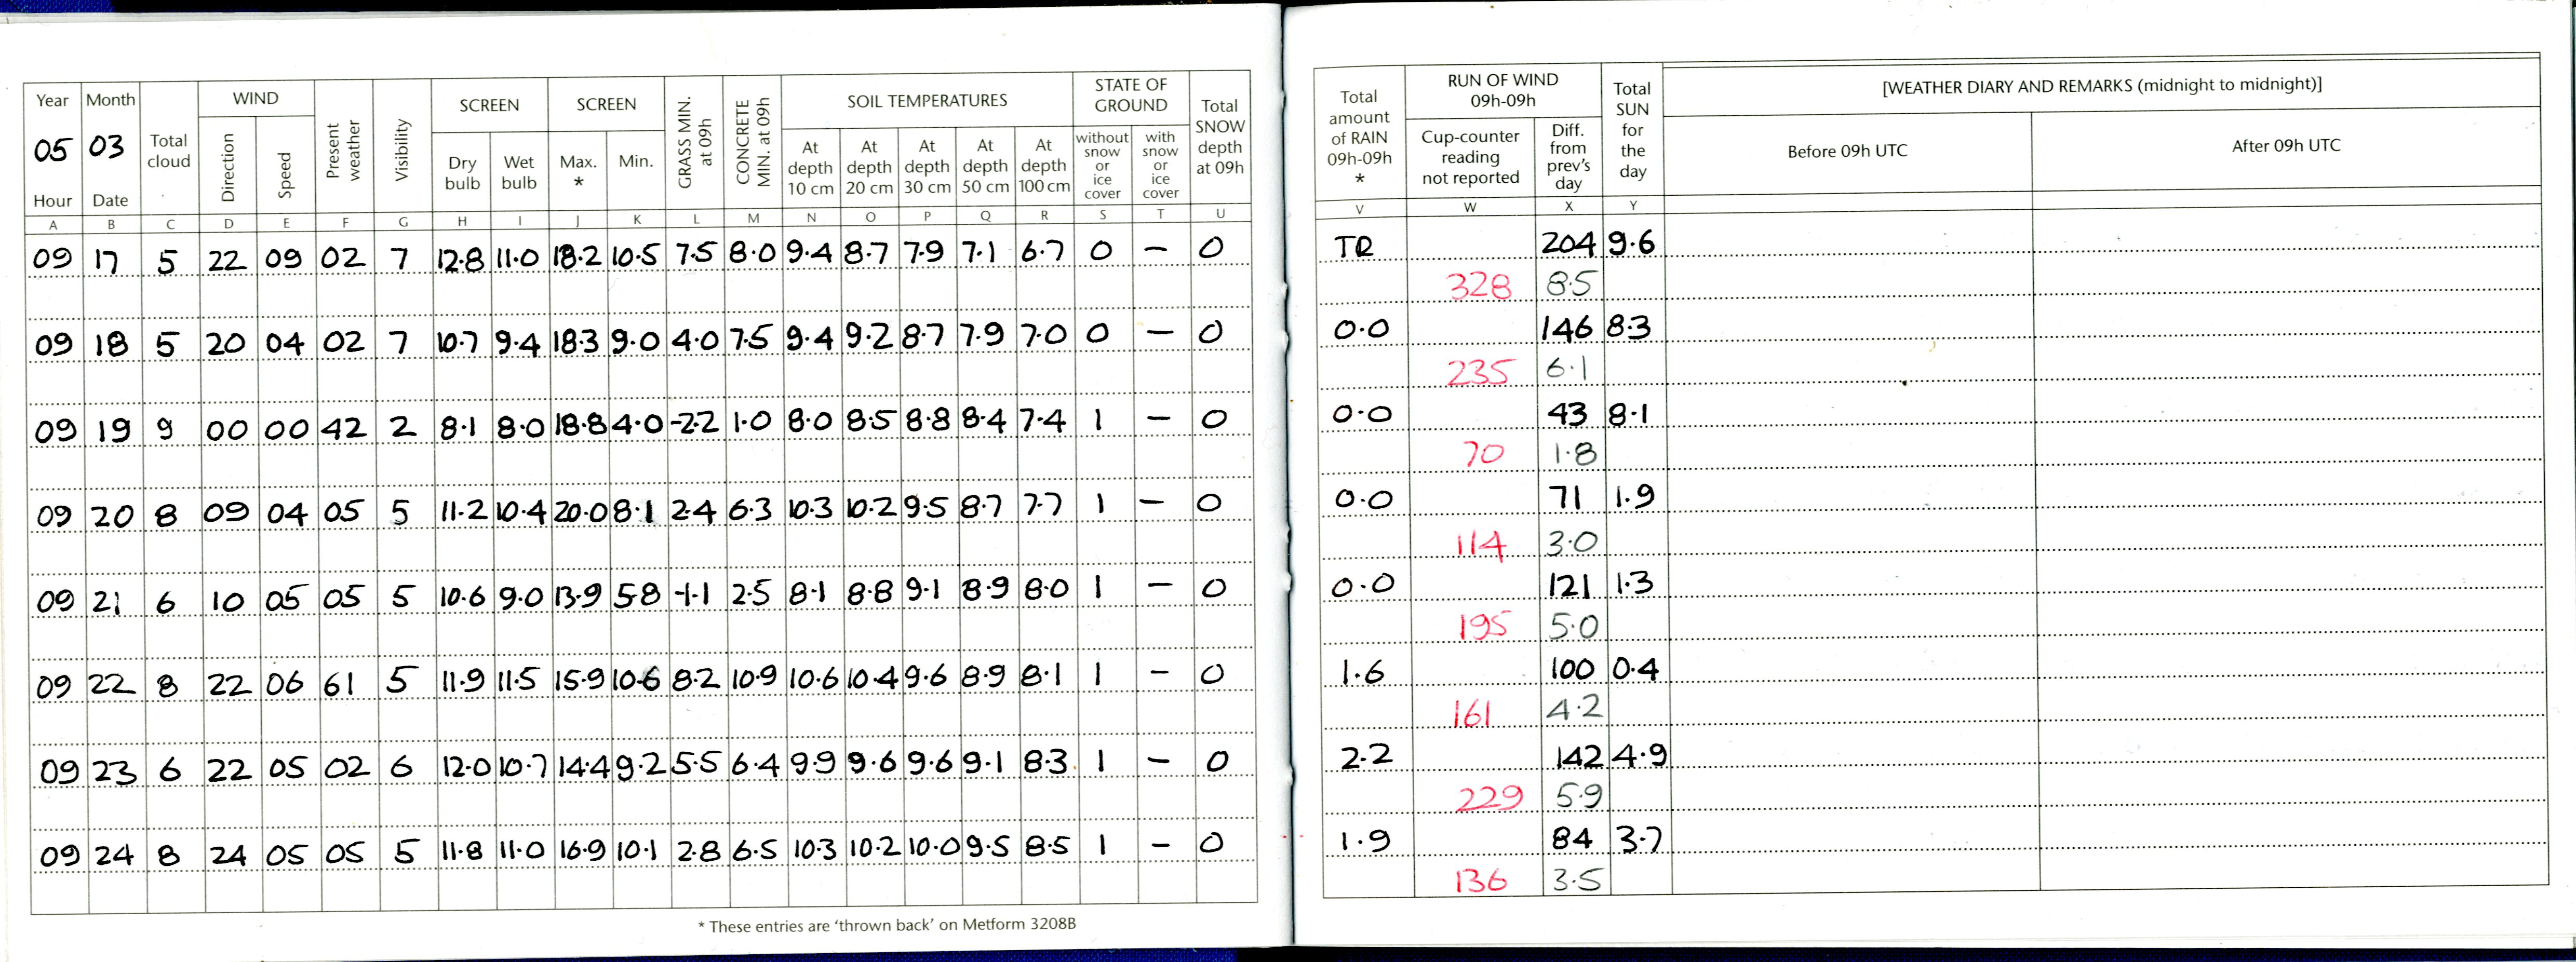 Year Month Total cloud WIND Present weather Visibility SCREEN SCREEN GRASS MIN. at 09h CONCRETE MIN. at 09h SOIL TEMPERATURES STATE OF GROUND Total SNOW depth at 09h
05 03 Direction Speed Dry bulb Wet bulb Max. * Min. At depth 10 cm At depth 20 cm At depth 30 cm At depth 50 cm At depth 100 cm without snow or ice cover with snow or ice cover
Hour Date
A B C D E F G H I J K L M N O P Q R S T U
09 17 5 22 09 02 7 12.8 11.0 18.2 10.5 7.5 8.0 9.4 8.7 7.9 7.1 6.7 0 – 0
09 18 5 20 04 02 7 10.7 9.4 18.3 9.0 4.0 7.5 9.4 9.2 8.7 7.9 7.0 0 – 0
09 19 9 00 00 42 2 8.1 8.0 18.8 4.0 -2.2 1.0 8.0 8.5 8.8 8.4 7.4 1 – 0
09 20 8 09 04 05 5 11.2 10.4 20.0 8.1 2.4 6.3 10.3 10.2 9.5 8.7 7.7 1 – 0
09 21 6 10 05 05 5 10.6 9.0 13.9 5.8 -1.1 2.5 8.1 8.8 9.1 8.9 8.0 1 – 0
09 22 8 22 06 61 5 11.9 11.5 15.9 10.6 8.2 10.9 10.6 10.4 9.6 8.9 8.1 1 – 0
09 23 6 22 05 02 6 12.0 10.7 14.4 9.2 5.5 6.4 9.9 9.6 9.6 9.1 8.3 1 – 0
09 24 8 24 05 05 5 11.8 11.0 16.9 10.1 2.8 6.5 10.3 10.2 10.0 9.5 8.5 1 – 0
* These entries are 'thrown back' on Metform 3208B
Total amount of RAIN 09h-09h * RUN OF WIND 09h-09h Total SUN for the day [WEATHER DIARY AND REMARKS (midnight to midnight)]
Cup-counter reading not reported Diff. from prev's day Before 09h UTC After 09h UTC
V W X Y
TR 204 9.6
328 8.5
0.0 146 8.3
235 6.1
0.0 43 8.1
70 1.8
0.0 71 1.9
114 3.0
0.0 121 1.3
195 5.0
1.6 100 0.4
161 4.2
2.2 142 4.9
229 5.9
1.9 84 3.7
136 3.5